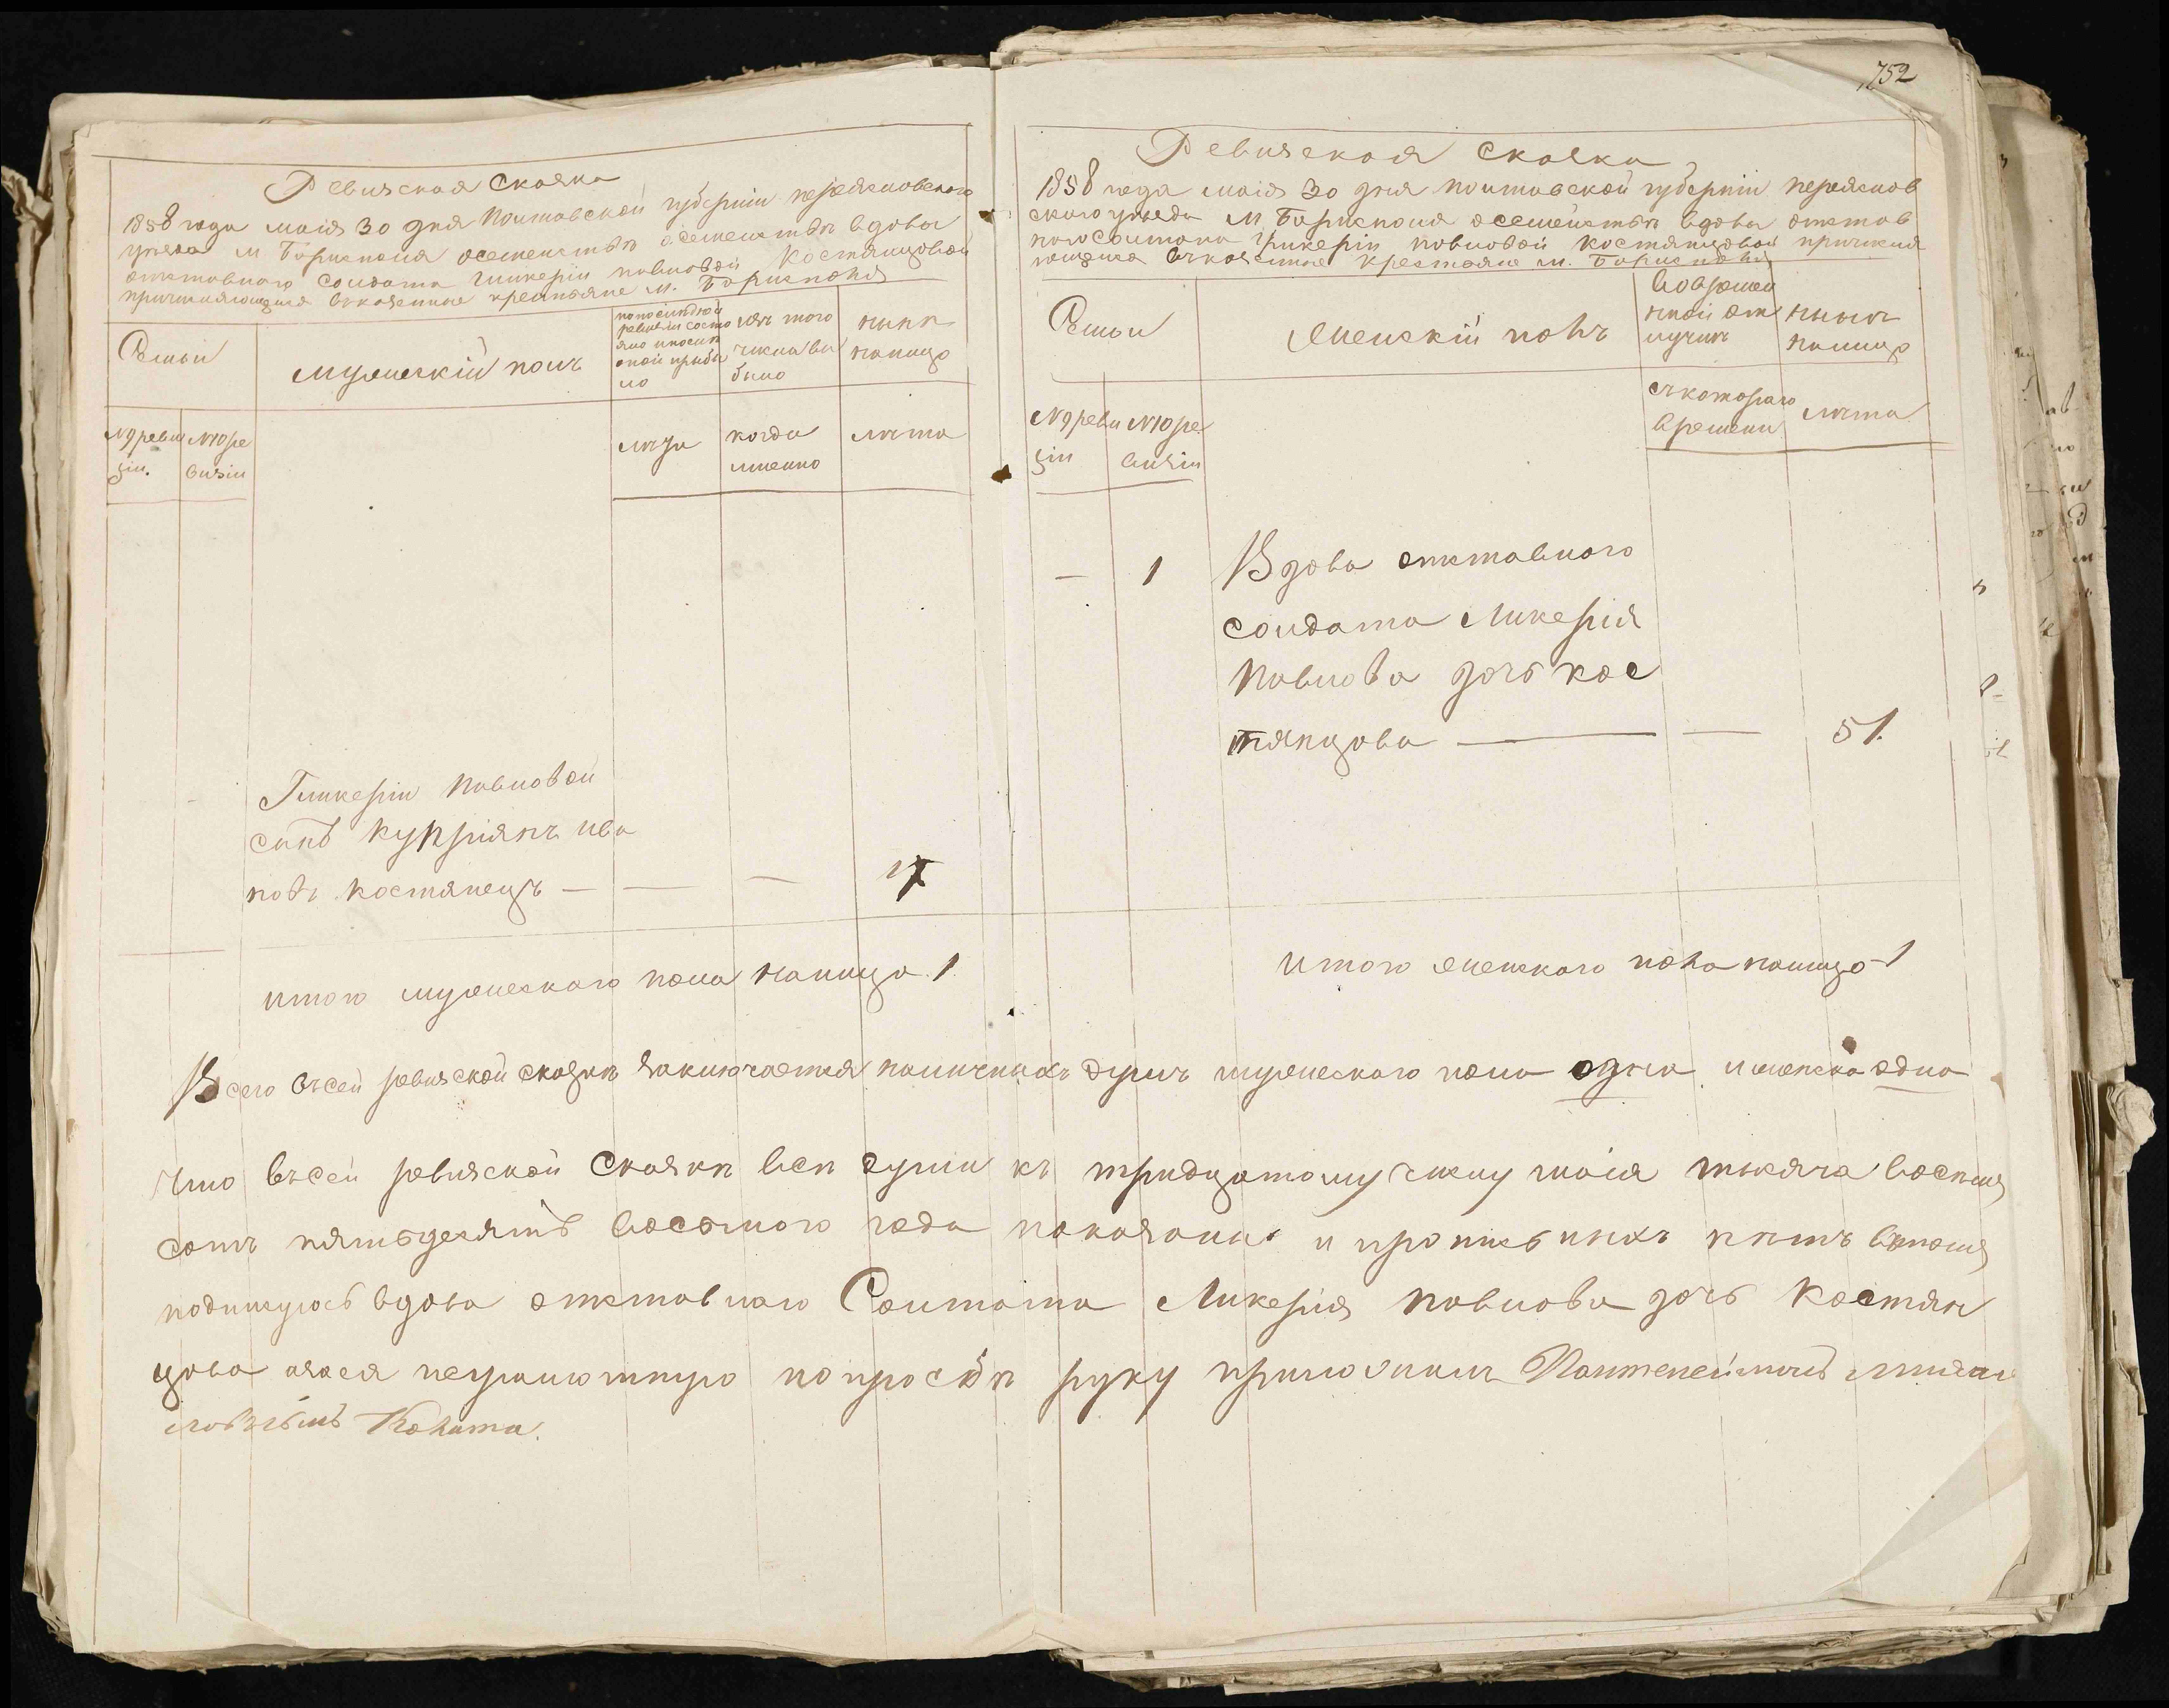 752
Ревизская Сказка
1858 года маія 30 дня Полтавской губерніи переясловского
уезда м Борисполя осемействѣ осемействѣ вдовы
отставного солдата Гликеріи павловой Костянцовой
причисляющейся вказенные крестьяне м. Борисполя
Семьи
мужескій полъ
по последней ревизіи состояло и после оной прибыло
изъ того числа выбыло
нынѣ налицо
№ 9 ревизіи.
№ 10 ревизіи
лѣта
когда именно
лѣта
Гликеріи Павловой
сынъ Купріянъ ива
новъ Костянецъ — — — 17
итого мужескаго пола налицо 1.
Ревизская сказка
1858 года маія 30 дня полтавской губерніи переяслов
ского уезда м Борисполя осемействѣ вдовы отстав
ного солтата Гликеріи павловой костянцовой причисля
ющейся вказенные крестяне м. Борисполя
Семьи
Женскій полъ
Вовремен
ной от
лучкѣ
нынѣ
налицо
№ 9 реви
зіи
№ 10 ре
визіи
скотораго
времени
лѣта
— 1 Вдова отставного
солдата Ликерія
Павлова дочь кос
тянцова — — 51.
итого женского пола налицо 1
Всего всей ревизской сказкѣ заключается наличныхъ душъ мужеского пола одна и женска одна
Что всей ревизской сказкѣ всѣ души къ тридцатому числу маія тысяча восемь
сотъ пятьдесятъ восьмого года показаны и прописныхъ нѣтъ втомъ
подписуюсь вдова отставного Солтата Ликерія Павлова дочь Костян
цова анея неграмотную попросбѣ руку приложилъ Пантелеймонъ
Колита.